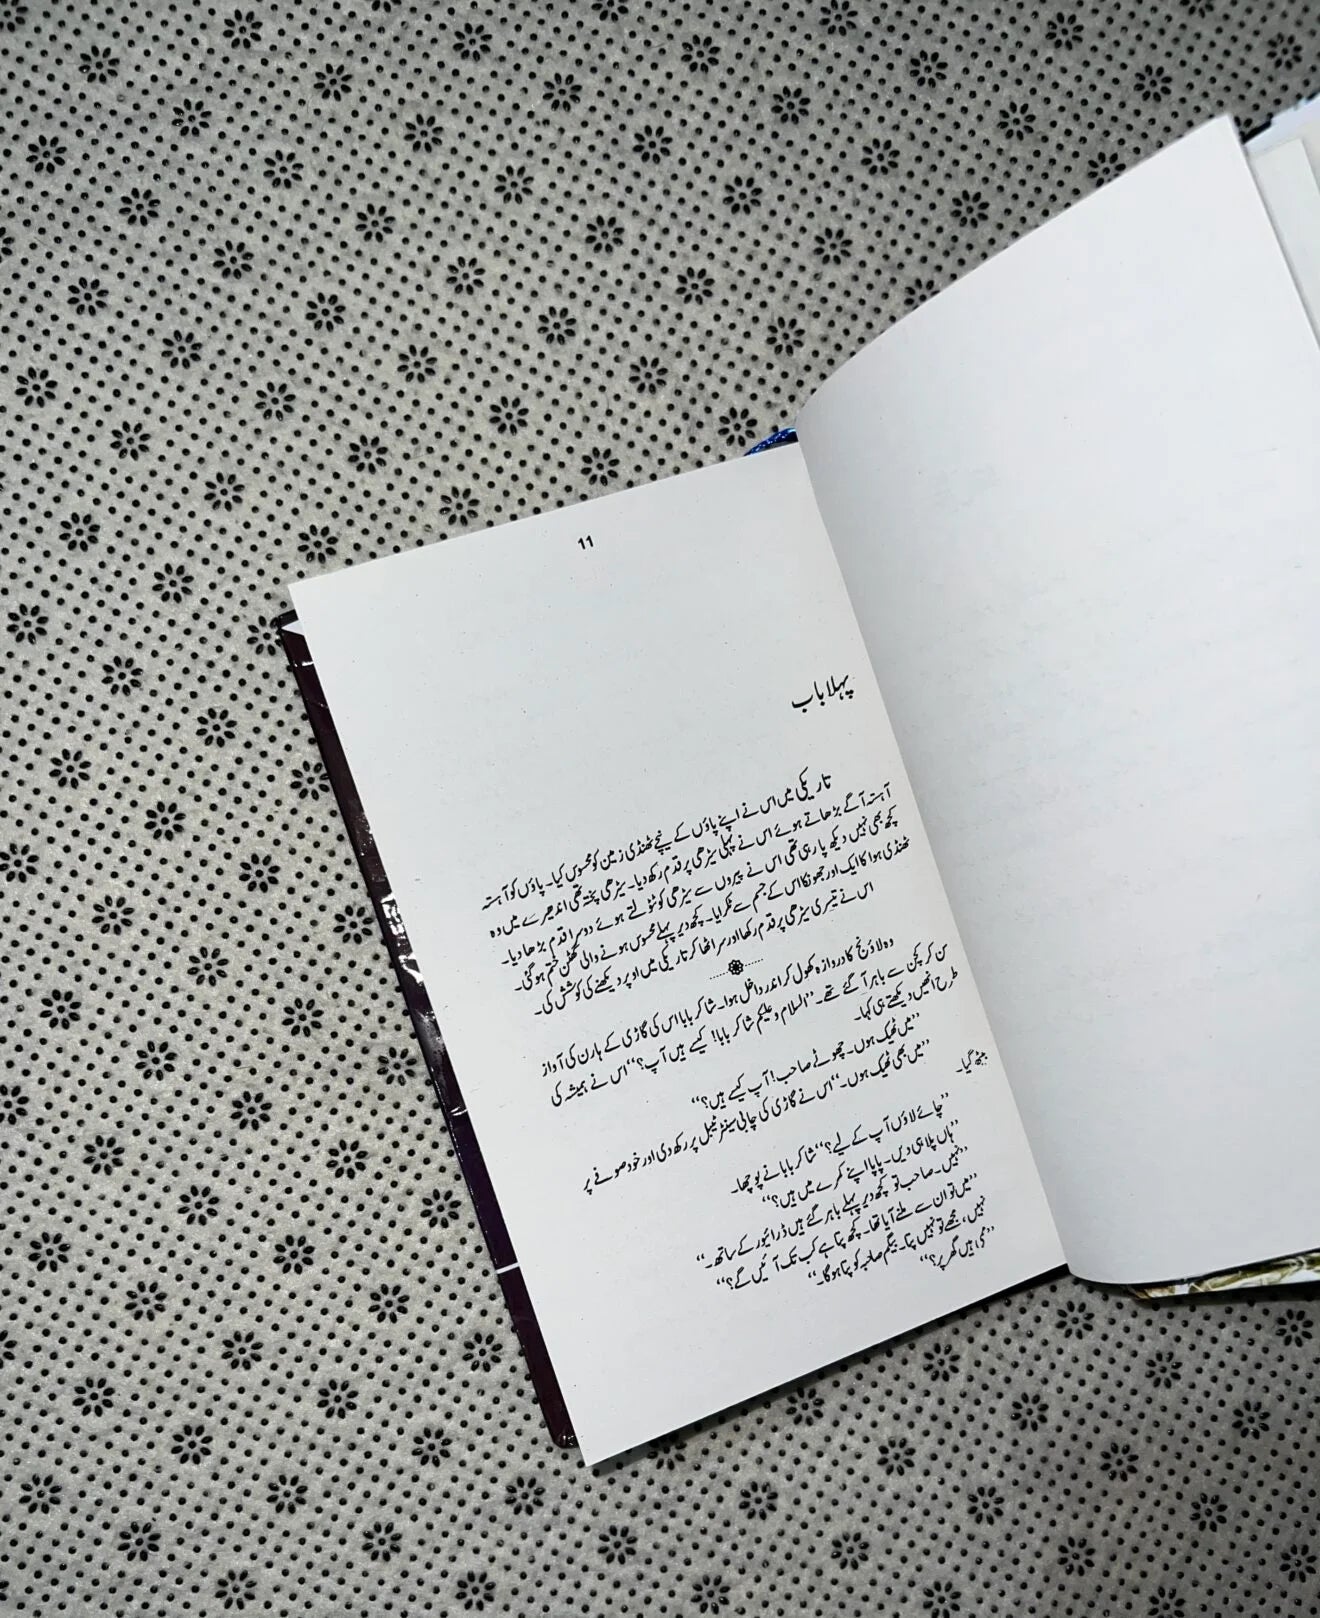 11
پہلا باب
تاریکی میں اس نے اپنے پاؤں کے نیچے ٹھنڈی زمین کو محسوس کیا۔ پاؤں کو آہستہ
آہستہ آگے بڑھاتے ہوئے اس نے پہلی سیڑھی پر قدم رکھ دیا۔ سیڑھی پختہ تھی اندھیرے میں وہ
کچھ بھی نہیں دیکھ پا رہی تھی اس نے پیروں سے سیڑھی کو ٹٹولتے ہوئے دوسرا قدم بڑھا دیا۔
ٹھنڈی ہوا کا ایک اور جھونکا اس کے جسم سے ٹکرایا۔ کچھ دیر پہلے محسوس ہونے والی گھٹن ختم ہو گئی۔
اس نے تیسری سیڑھی پر قدم رکھا اور سر اٹھا کر تاریکی میں اوپر دیکھنے کی کوشش کی۔
وہ لاؤنج کا دروازہ کھول کر اندر داخل ہوا۔ شاکر بابا اس کی گاڑی کے ہارن کی آواز
سن کر کچن سے باہر آ گئے تھے۔ ”السلام و علیکم شاکر بابا! کیسے ہیں آپ؟“ اس نے ہمیشہ کی
طرح انھیں دیکھتے ہی کہا۔
”میں ٹھیک ہوں۔ چھوٹے صاحب! آپ کیسے ہیں؟“
”میں بھی ٹھیک ہوں۔“ اس نے گاڑی کی چابی سینٹر ٹیبل پر رکھ دی اور خود صوفے پر
بیٹھ گیا۔
”چائے لاؤں آپ کے لیے؟“ شاکر بابا نے پوچھا۔
”ہاں پلا ہی دیں۔ پاپا اپنے کمرے میں ہیں؟“
”نہیں۔ صاحب تو کچھ دیر پہلے باہر گئے ہیں ڈرائیور کے ساتھ۔“
”میں تو ان سے ملنے آیا تھا۔ کچھ پتا ہے کب تک آئیں گے؟“
نہیں، مجھے تو نہیں پتا۔ بیگم صاحبہ کو پتا ہوگا۔“
”ممی ہیں گھر پر؟“